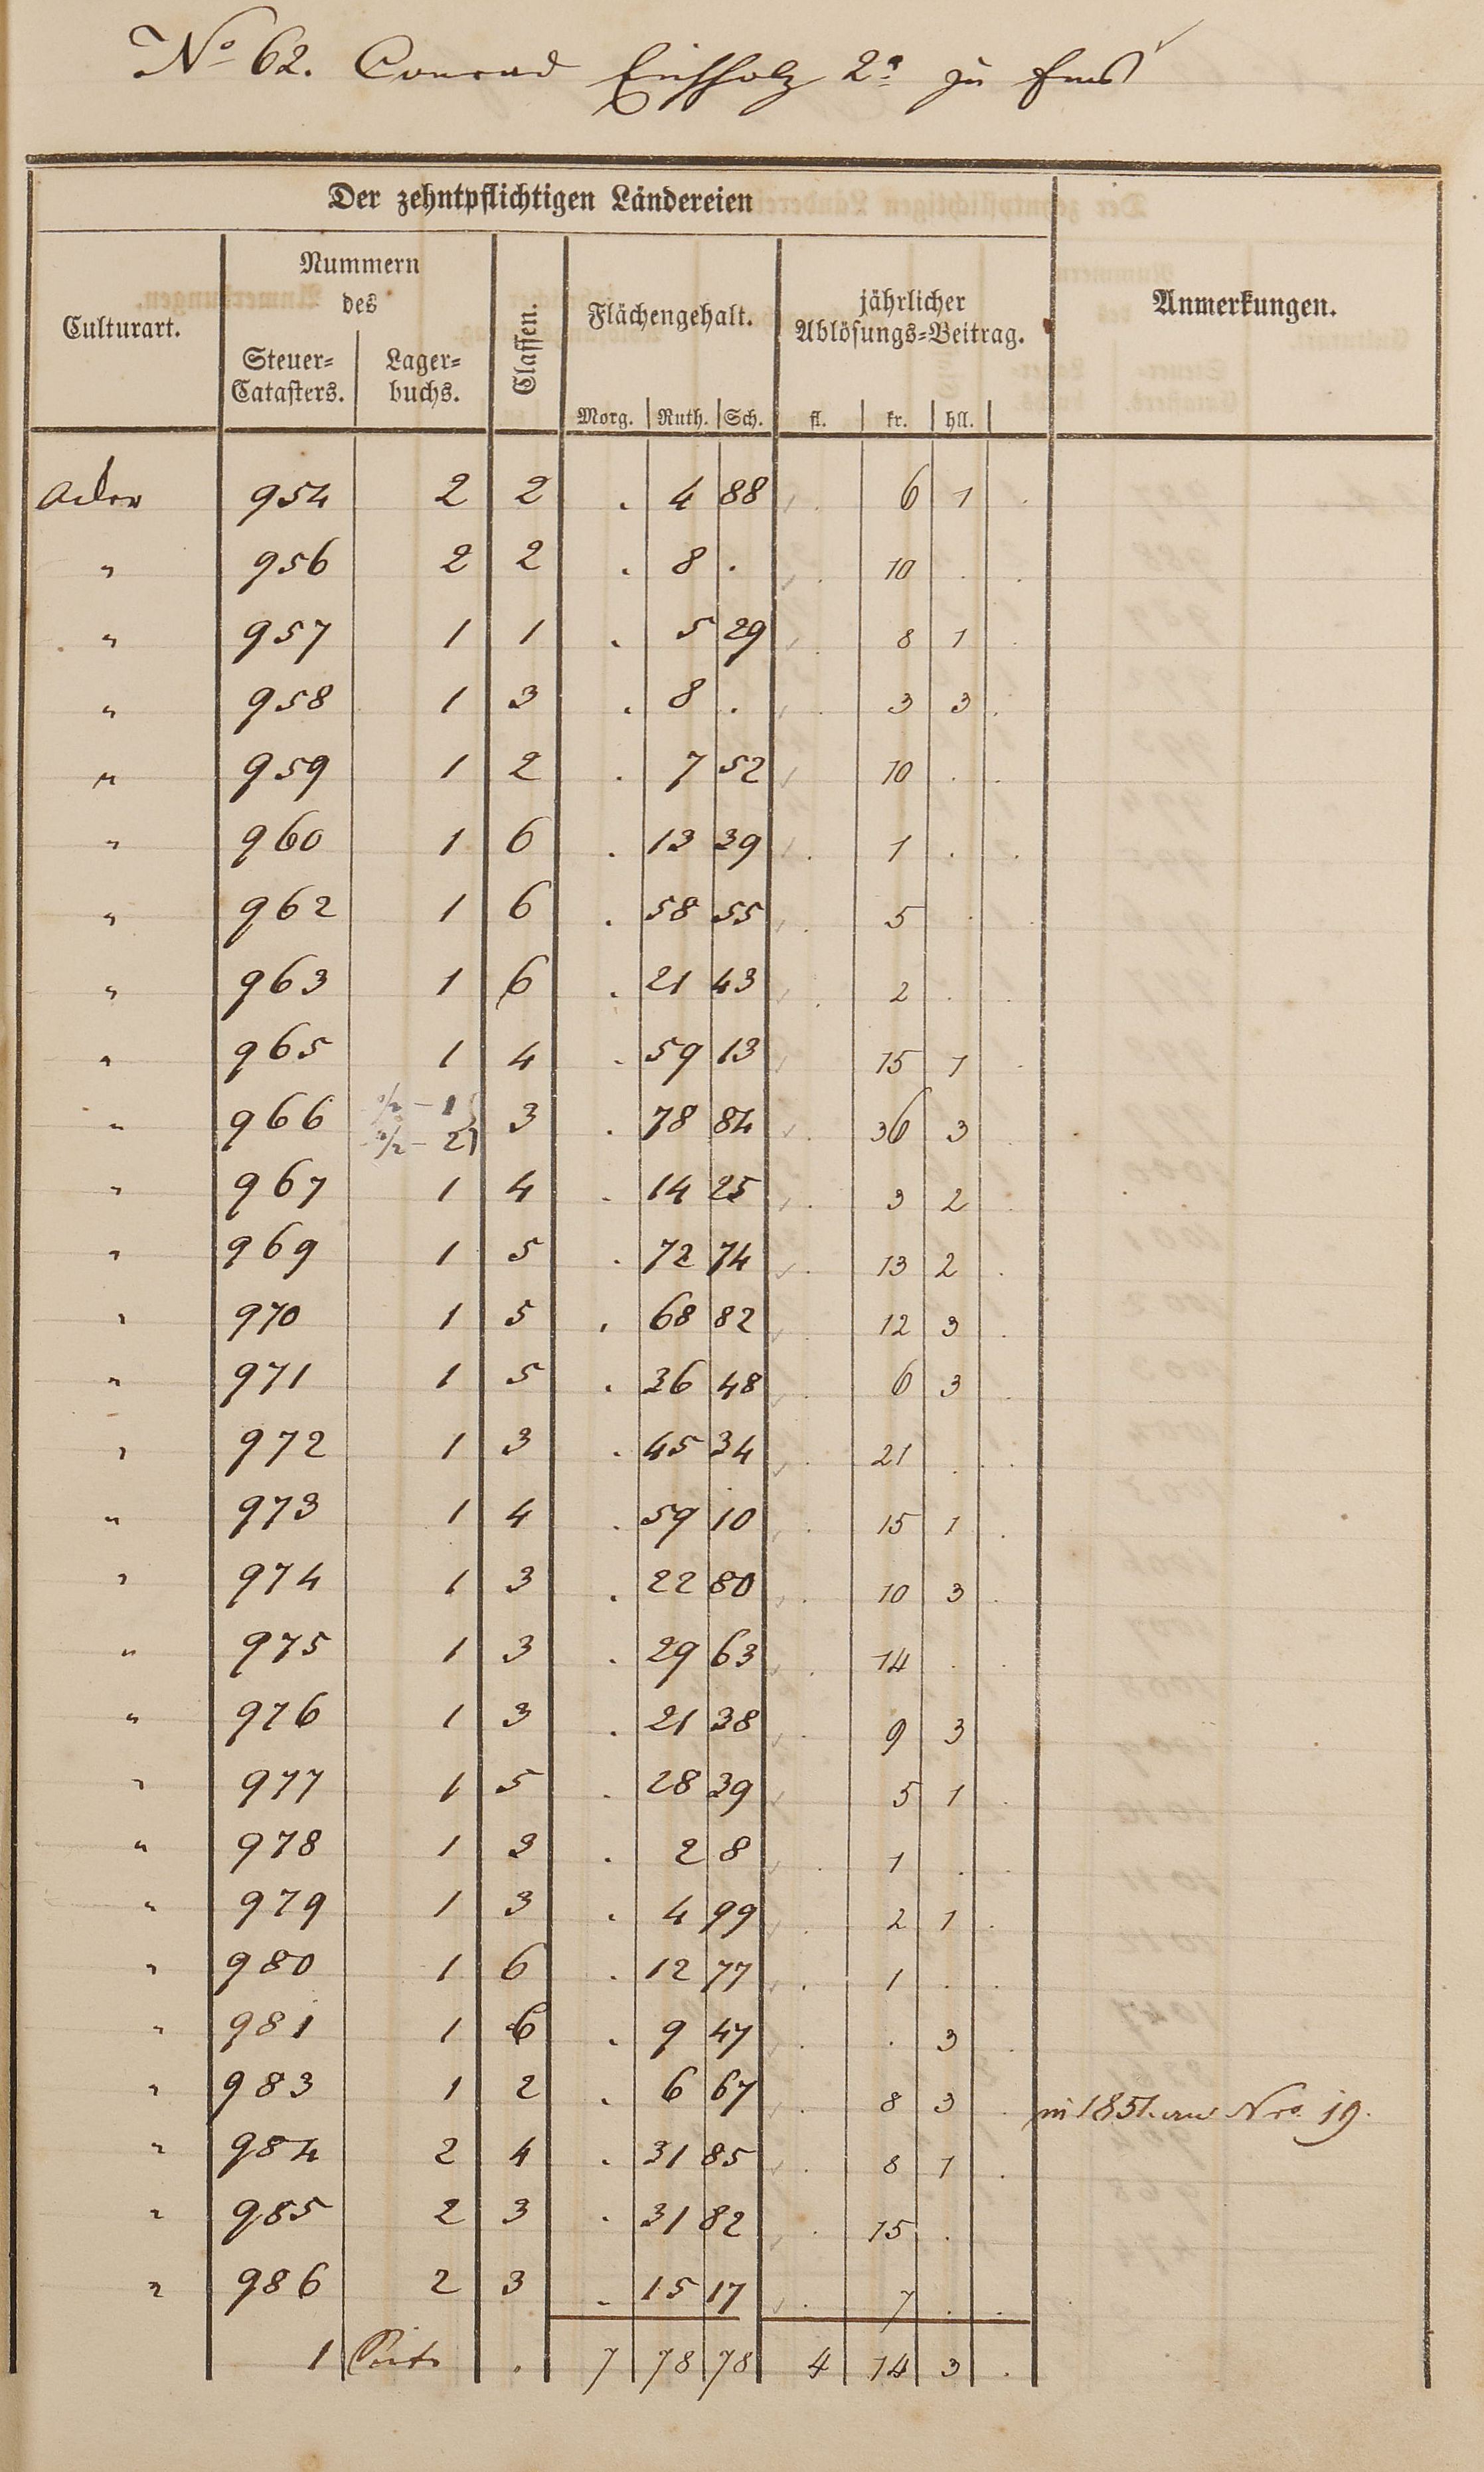 No 62. Conrad Eichholz 2r zu Ems
Der zehntpflichtigen Ländereien
Culturart. Nummern des Classen. Flächengehalt. jährlicher Ablösungs=Beitrag. Anmerkungen.
Steuer=Catasters. Lager=buchs. Morg. Ruth. Sch. fl. kr. hll.
Acker 954 2 2 . 4 88 . 6 1 .
" 956 2 2 . 8 . . 10 . .
" 957 1 1 . 5 29 . 8 1 .
" 958 1 3 . 8 . . 3 3 .
" 959 1 2 . 7 52 . 10 . .
" 960 1 6 . 13 39 . 1 . .
" 962 1 6 . 58 55 . 5 . .
" 963 1 6 . 21 43 . 2 . .
" 965 1 4 . 59 13 . 15 1 .
" 966 1/2 – 1 1/2 – 2 3 . 78 84 . 36 3 .
" 967 1 4 . 14 25 . 3 2 .
" 969 1 5 . 72 74 . 13 2 .
" 970 1 5 . 68 82 . 12 3 .
" 971 1 5 . 36 48 . 6 3 .
" 972 1 3 . 45 34 . 21 . .
" 973 1 4 . 59 10 . 15 1 .
" 974 1 3 . 22 80 . 10 3 .
" 975 1 3 . 29 63 . 14 . .
" 976 1 3 . 21 38 . 9 3 .
" 977 1 5 . 28 39 . 5 1 .
" 978 1 3 . 2 8 . 1 . .
" 979 1 3 . 4 99 . 2 1 .
" 980 1 6 . 12 77 . 1 . .
" 981 1 6 . 9 47 . . 3 .
" 983 1 2 . 6 67 . 8 3 . in 1851. an Nro. 19.
" 984 2 4 . 31 85 . 8 1 .
" 985 2 3 . 31 82 . 15 . .
" 986 2 3 . 15 17 . 7 . .
1 . 7 78 78 4 14 3 .